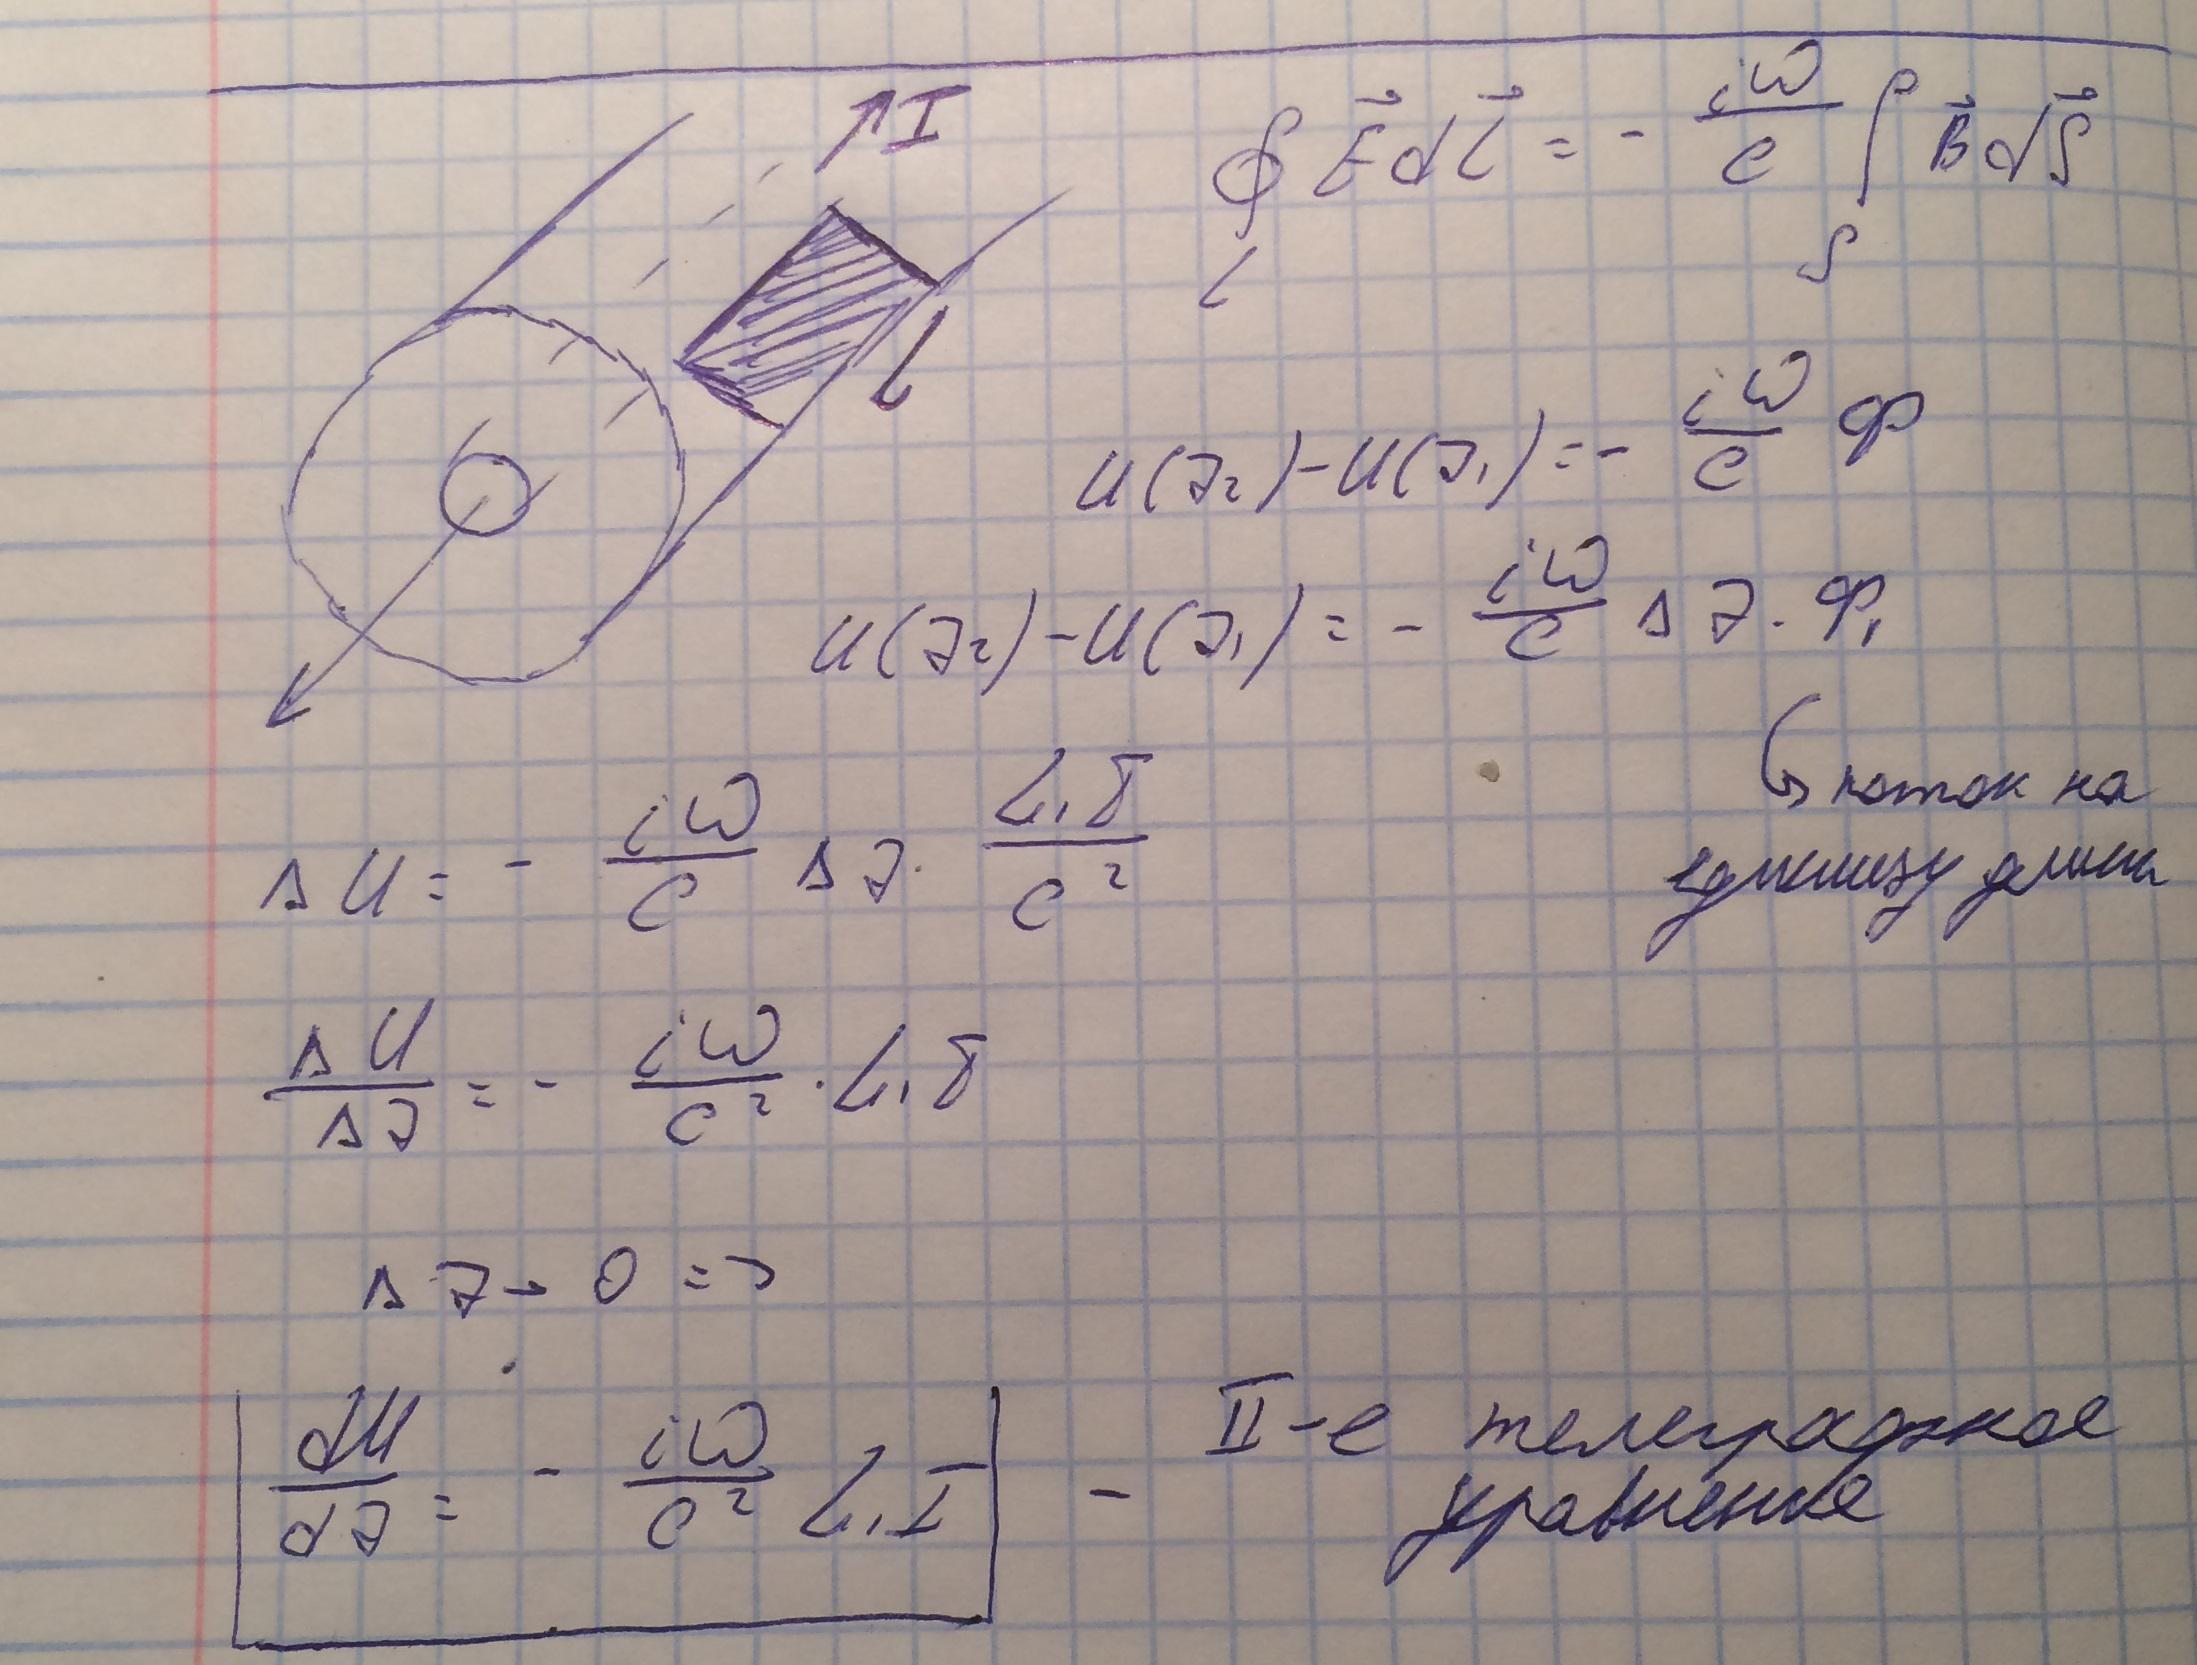 I
∮ E⃗ dl⃗ = - iω/c ∫ B⃗ dS⃗
L S
l
U(z₂) - U(z₁) = - iω/c Φ
U(z₂) - U(z₁) = - iω/c Δz · Φ₁
поток на
единицу длины
ΔU = - iω/c Δz · L₁I/c²
ΔU/Δz = - iω/c² · L₁I
Δz → 0 =>
dU/dz = - iω/c² L₁I - II-е телеграфное
уравнение